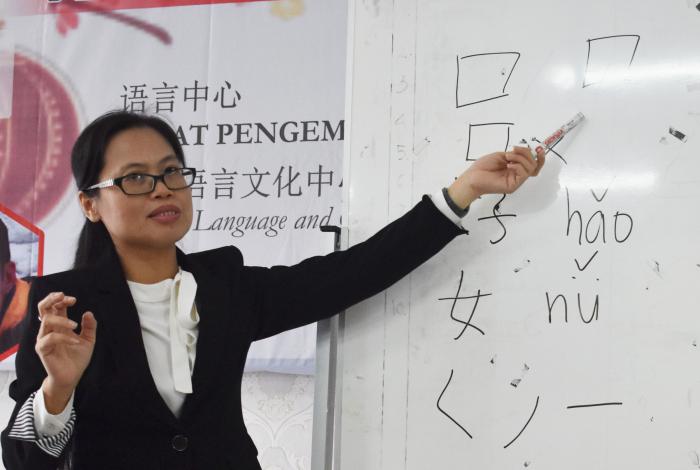 语言中心
AT PENGEM
语言文化中
Language and
口
子 hǎo
女 nǚ
く ノ 一